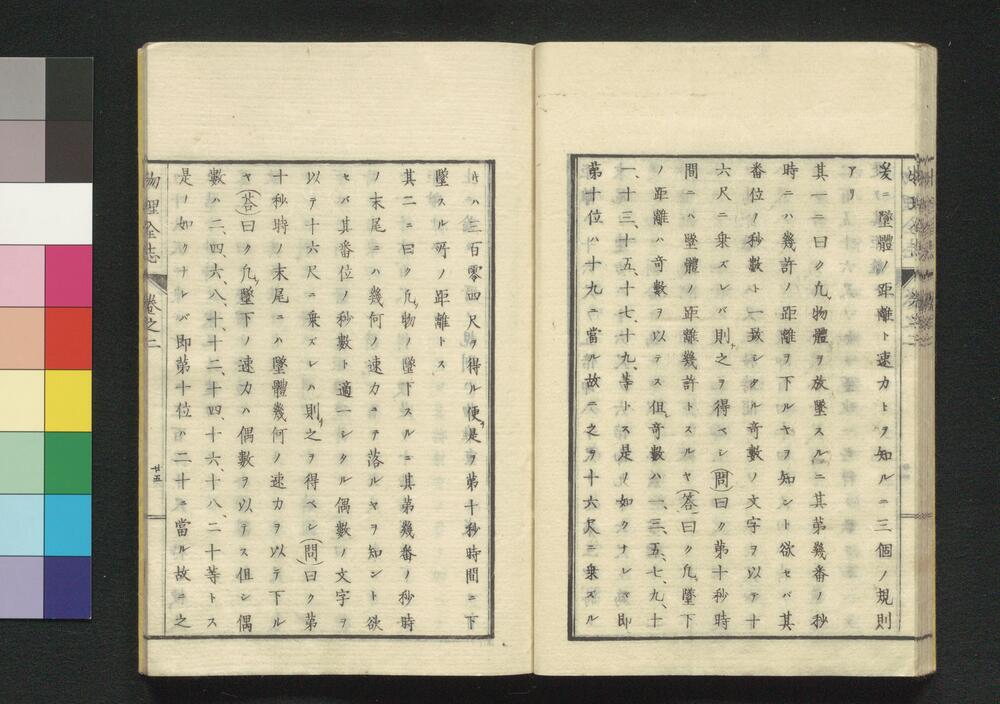 爰ニ墜體ノ距離ト速力トヲ知ルニ三個ノ規則
アリ
其一ニ曰ク凡ソ物體ヲ放墜スルニ其第幾番ノ秒
時ニハ幾許ノ距離ヲ下ルヤヲ知ント欲セバ其
番位ノ秒數ト一致シタル奇數ノ文字ヲ以テ十
六尺ニ乗ズレバ則チ之ヲ得ベシ(問)曰ク第十秒時
間ニハ墜體ノ距離幾許トスルヤ(答)曰ク凡ソ墜下
ノ距離ハ奇數ヲ以テス但シ奇數ハ一、三、五、七、九、十
一、十三、十五、十七、十九、等トス是ノ如クナレバ即
第十位ハ十九ニ當ル故ニ之ヲ十六尺ニ乗ズル
片ハ三百零四尺ヲ得ル便チ是ヲ第十秒時間ニ下
墜スル所ノ距離トス
其二ニ曰ク凡ソ物ノ墜下スルニ其第幾番ノ秒時
ノ末尾ニハ幾何ノ速力ニテ落ルヤヲ知ント欲
セバ其番位ノ秒數ト適一シタル偶數ノ文字ヲ
以テ十六尺ニ乗ズレハ則チ之ヲ得ベシ(問)曰ク第
十秒時ノ末尾ニハ墜體幾何ノ速力ヲ以テ下ル
ヤ(答)曰ク凡ソ墜下ノ速力ハ偶數ヲ以テス但シ偶
數ハ二、四、六、八、十、十二、十四、十六、十八、二十等トス
是ノ如クナレバ即第十位ハ二十ニ當ル故ニ之
物理全志 卷之二
廿五